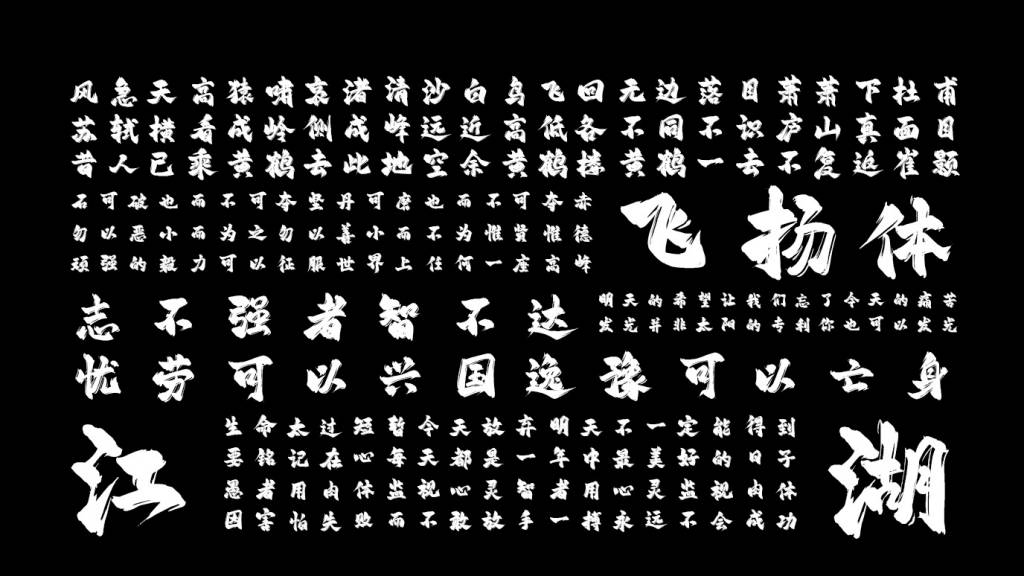 风急天高猿啸哀渚清沙白鸟飞回无边落目萧萧下杜甫
苏轼横看成岭侧成峰远近高低各不同不识庐山真面目
昔人已乘黄鹤去此地空余黄鹤楼黄鹤一去不复追崔颢
石可破也而不可夺坚丹可磨也而不可夺赤
勿以恶小而为之勿以善小而不为惟贤惟德
顽强的毅力可以征服世界上任何一座高峰
飞扬体
明天的希望让我们忘了今天的痛苦
发光并非太阳的专利你也可以发光
志不强者智不达
忧劳可以兴国逸豫可以亡身
江
生命太过短暂今天放弃明天不一定能得到
要铭记在心每天都是一年中最美好的日子
愚者用肉体监视心灵智者用心灵监视肉体
因害怕失败而不敢放手一搏永远不会成功
湖